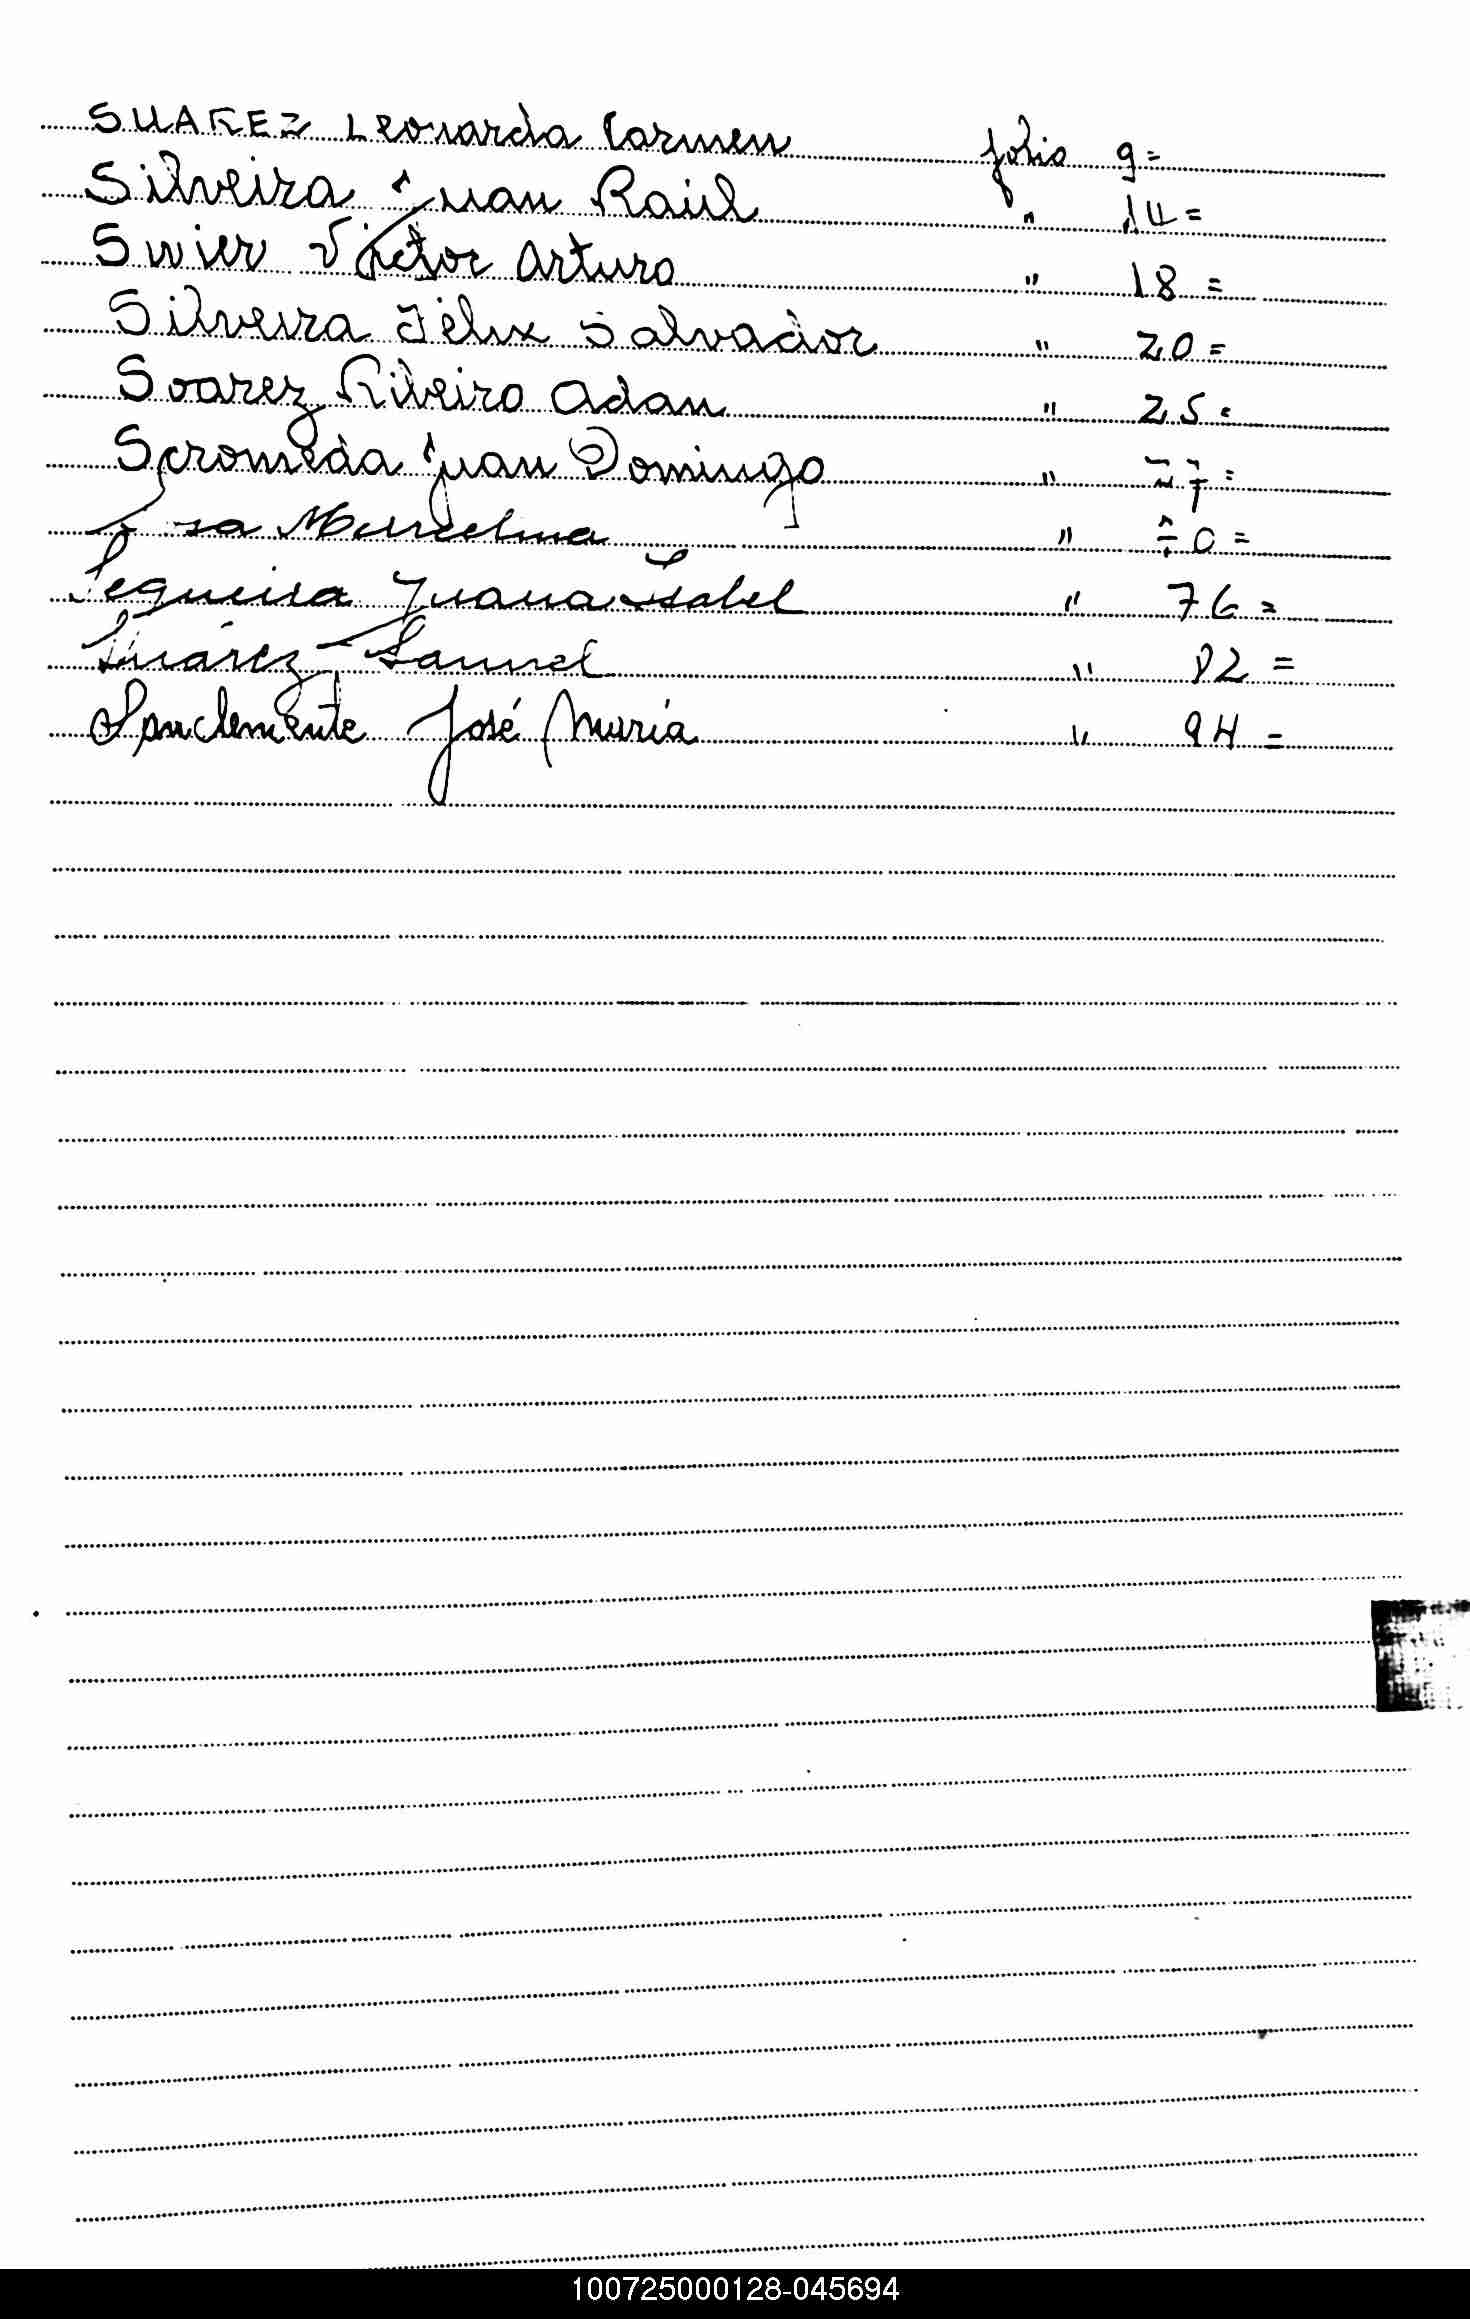 SUAREZ Leonarda Carmen folio 9=
Silveira Juan Raúl " 14=
Swier Víctor Arturo " 18=
Silveira Félix Salvador " 20=
Soarez Ribeiro Adan " 25=
Scromeda Juan Domingo " 27=
Sosa Marcelina " 0=
Sequeira Juana Isabel " 76=
Suárez Samuel " 82=
Sanclemente José María " 94=
100725000128-045694